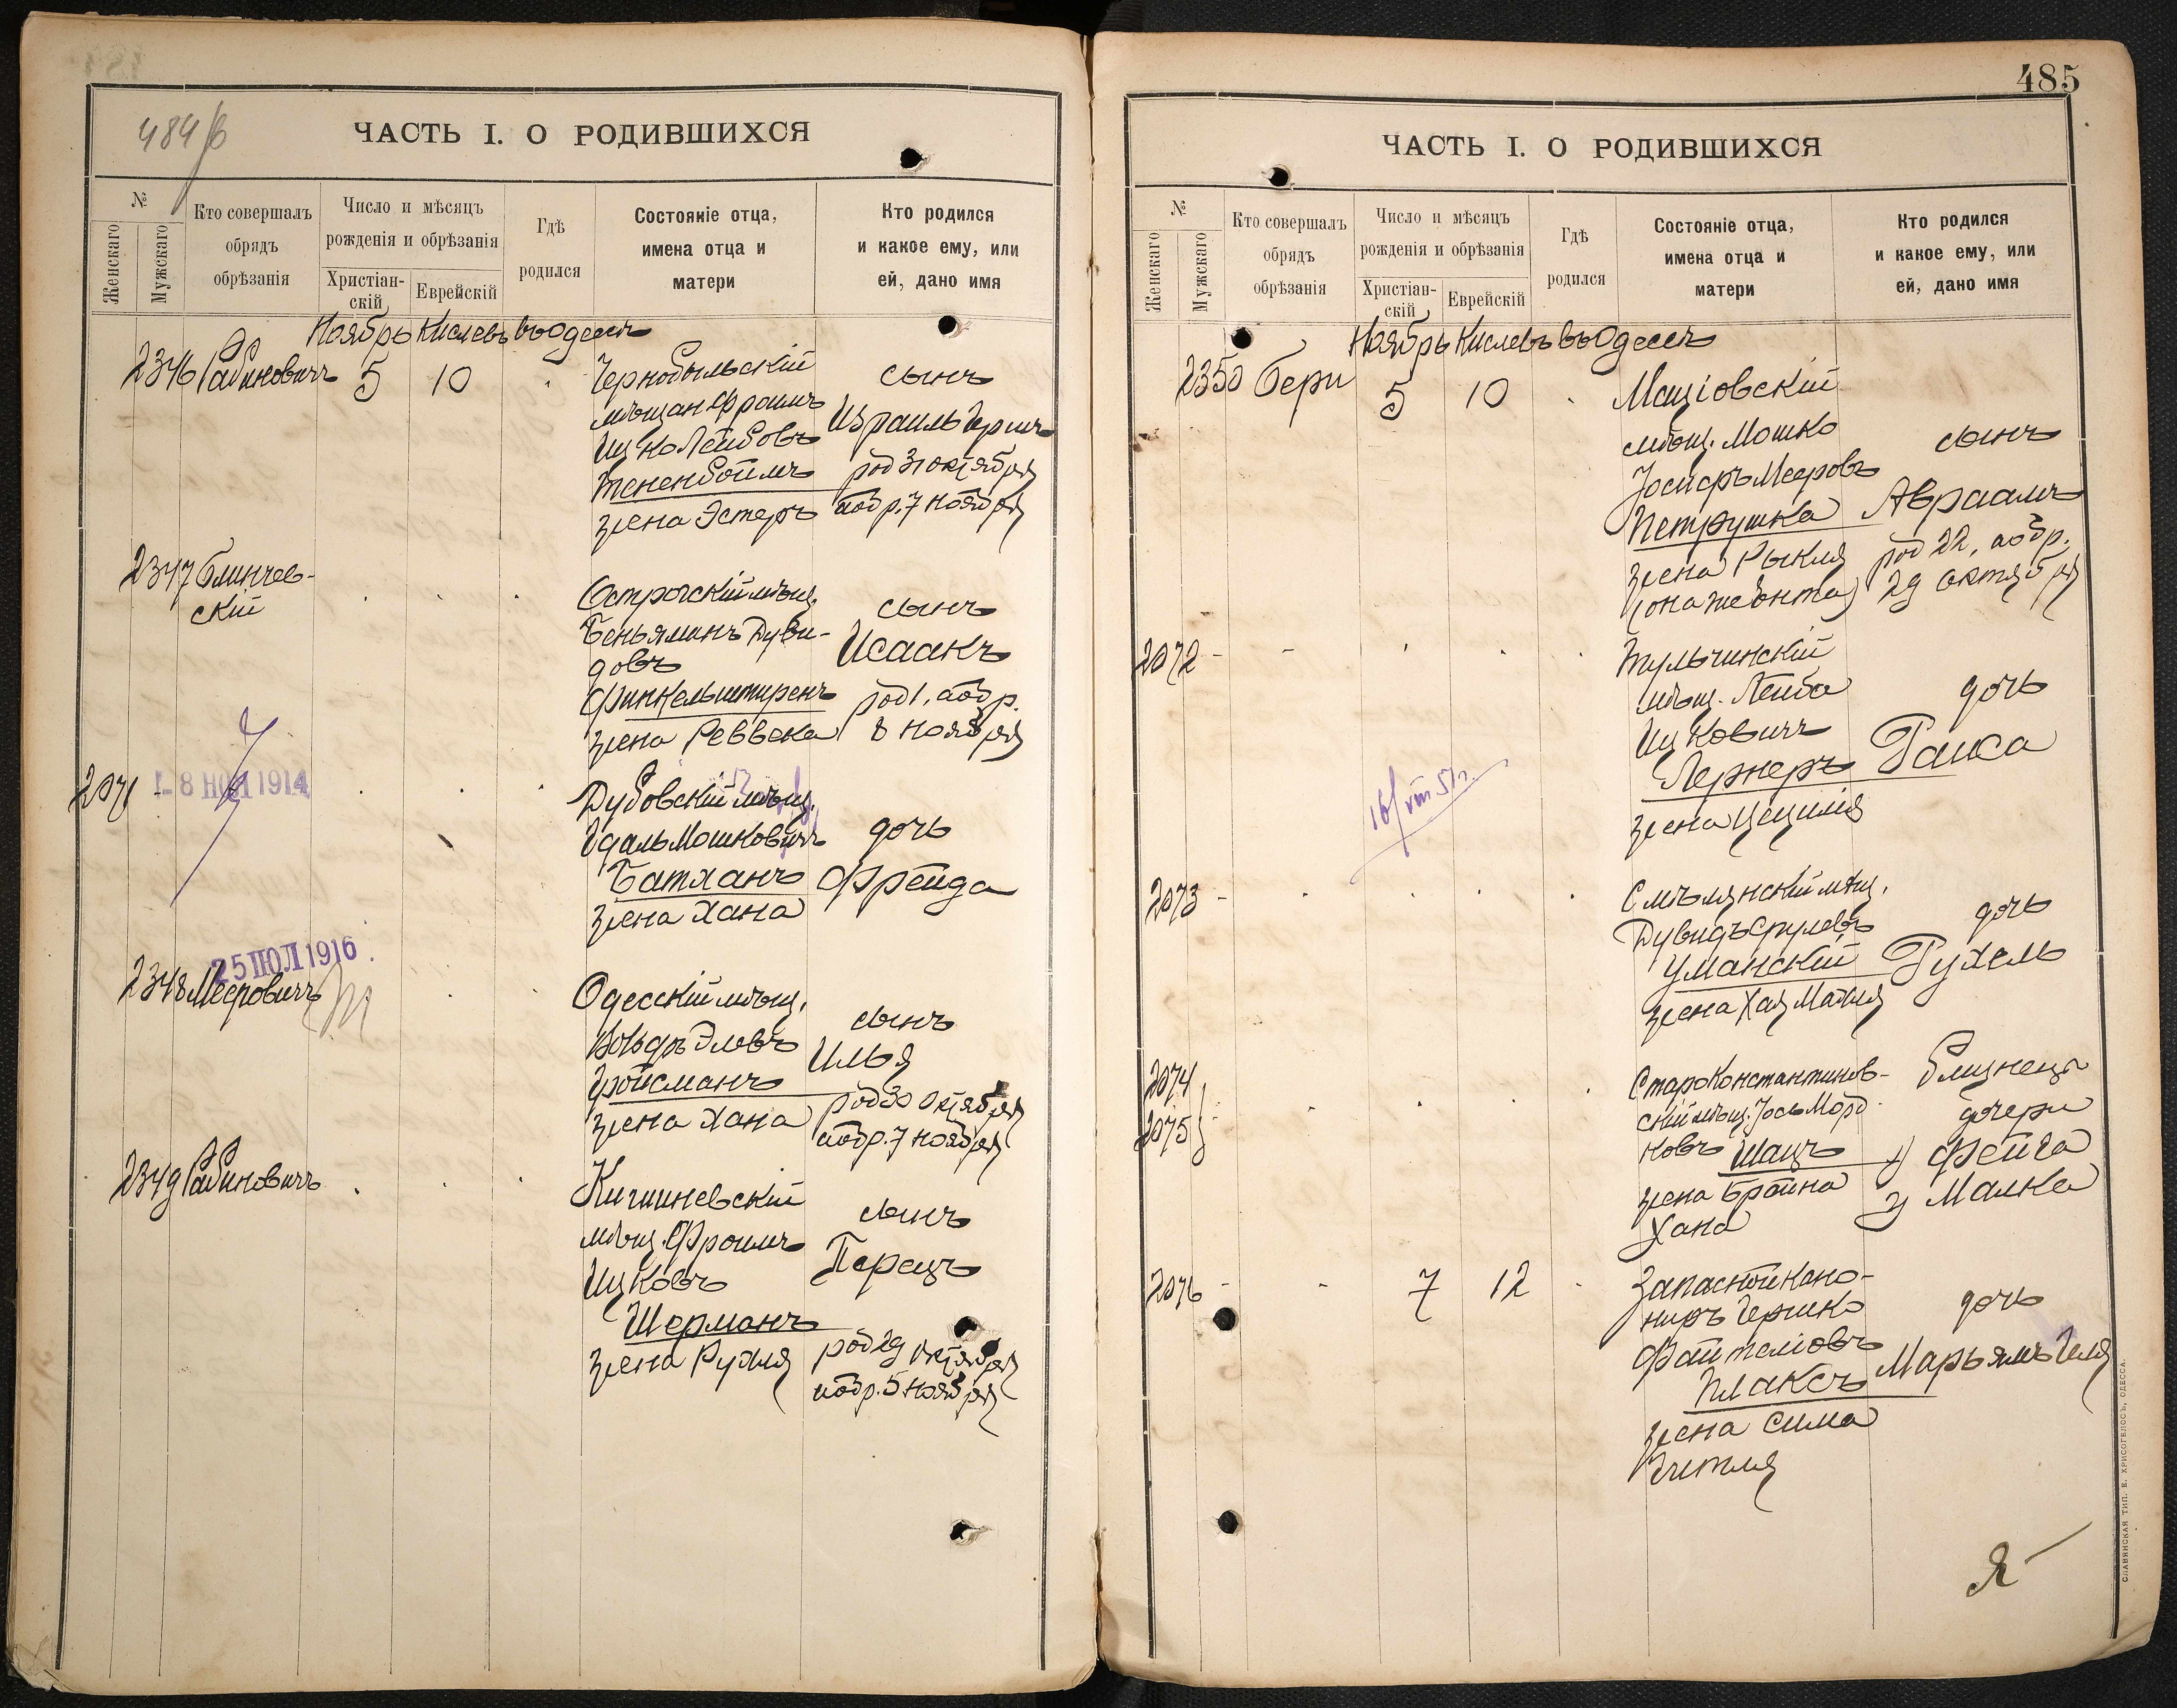 484 об
ЧАСТЬ I. О РОДИВШИХСЯ
№
Женскаго
Мужскаго
Кто совершалъ
обрядъ
обрѣзанія
Число и мѣсяцъ
рожденія и обрѣзанія
Христіан-
скій
Еврейскій
Гдѣ
родился
Состояніе отца,
имена отца и
матери
Кто родился
и какое ему, или
ей, дано имя
Ноябрь Кислевъ въ Одессѣ
2346 Рабиновичъ 5 10
Чернобыльскій
мѣщан. Фроимъ
Ицко Лейбовъ
Тененбоймъ
жена Эстеръ
сынъ
Израиль Гершъ
род 31 октября
а обр. 7 ноября
2347 Блинчев-
скій
Острогскій мѣщ.
Беньяминъ Дуви-
довъ
Финкельштиренъ
жена Реввека
сынъ
Исаакъ
род 1, а обр.
8 ноября
2071 -
- 8 НОЯ 1914
Дубовскій мѣщ.
Удаль Мошковичъ
Батханъ
жена Хана
дочь
Фрейда
25 ІЮЛ 1916
2348 Мееровичъ
Одесскій мѣщ.
Вольфъ Элевъ
Гройсманъ
жена Хана
сынъ
Илья
род 30 октября
а обр. 7 ноября
2349 Рабиновичъ
Кишиневскій
мѣщ. Фроимъ
Ицковъ
Шерманъ
жена Рухля
сынъ
Перецъ
род 29 октября
а обр. 5 ноября
485
ЧАСТЬ I. О РОДИВШИХСЯ
№
Женскаго
Мужскаго
Кто совершалъ
обрядъ
обрѣзанія
Число и мѣсяцъ
рожденія и обрѣзанія
Христіан-
скій
Еврейскій
Гдѣ
родился
Состояніе отца,
имена отца и
матери
Кто родился
и какое ему, или
ей, дано имя
Ноябрь Кислевъ въ Одессѣ
2350 Бери 5 10
Маціовскій
мѣщ. Мошко
Іосифъ Мееровъ
Петрушка
жена Рыкля
(она же Юнта)
сынъ
Авраамъ
род 22, а обр.
29 октября
2072 -
Тульчинскій
мѣщ. Лейба
Ицковичъ
Лернеръ
жена Цецилія
дочь
Раиса
16/VIII 57 г.
2073 -
Смѣлянскій мѣщ.
Дувидъ Срулевъ
Уманскій
жена Хая Маля
дочь
Рухель
2074
2075
Староконстантинов-
скій мѣщ. Іось Морд-
ковъ Шацъ
жена Брайна
Хана
близнецы
дочери
1) Фейга
2) Малка
2076 - 7 12
Запасной кано-
ниръ Гершко
Файтеліовъ
Плаксъ
жена Сима
Гитля
дочь
Марьямъ Геля
СЛАВЯНСКАЯ ТИП. Е. ХРИСОГЕЛОСЪ, ОДЕССА.